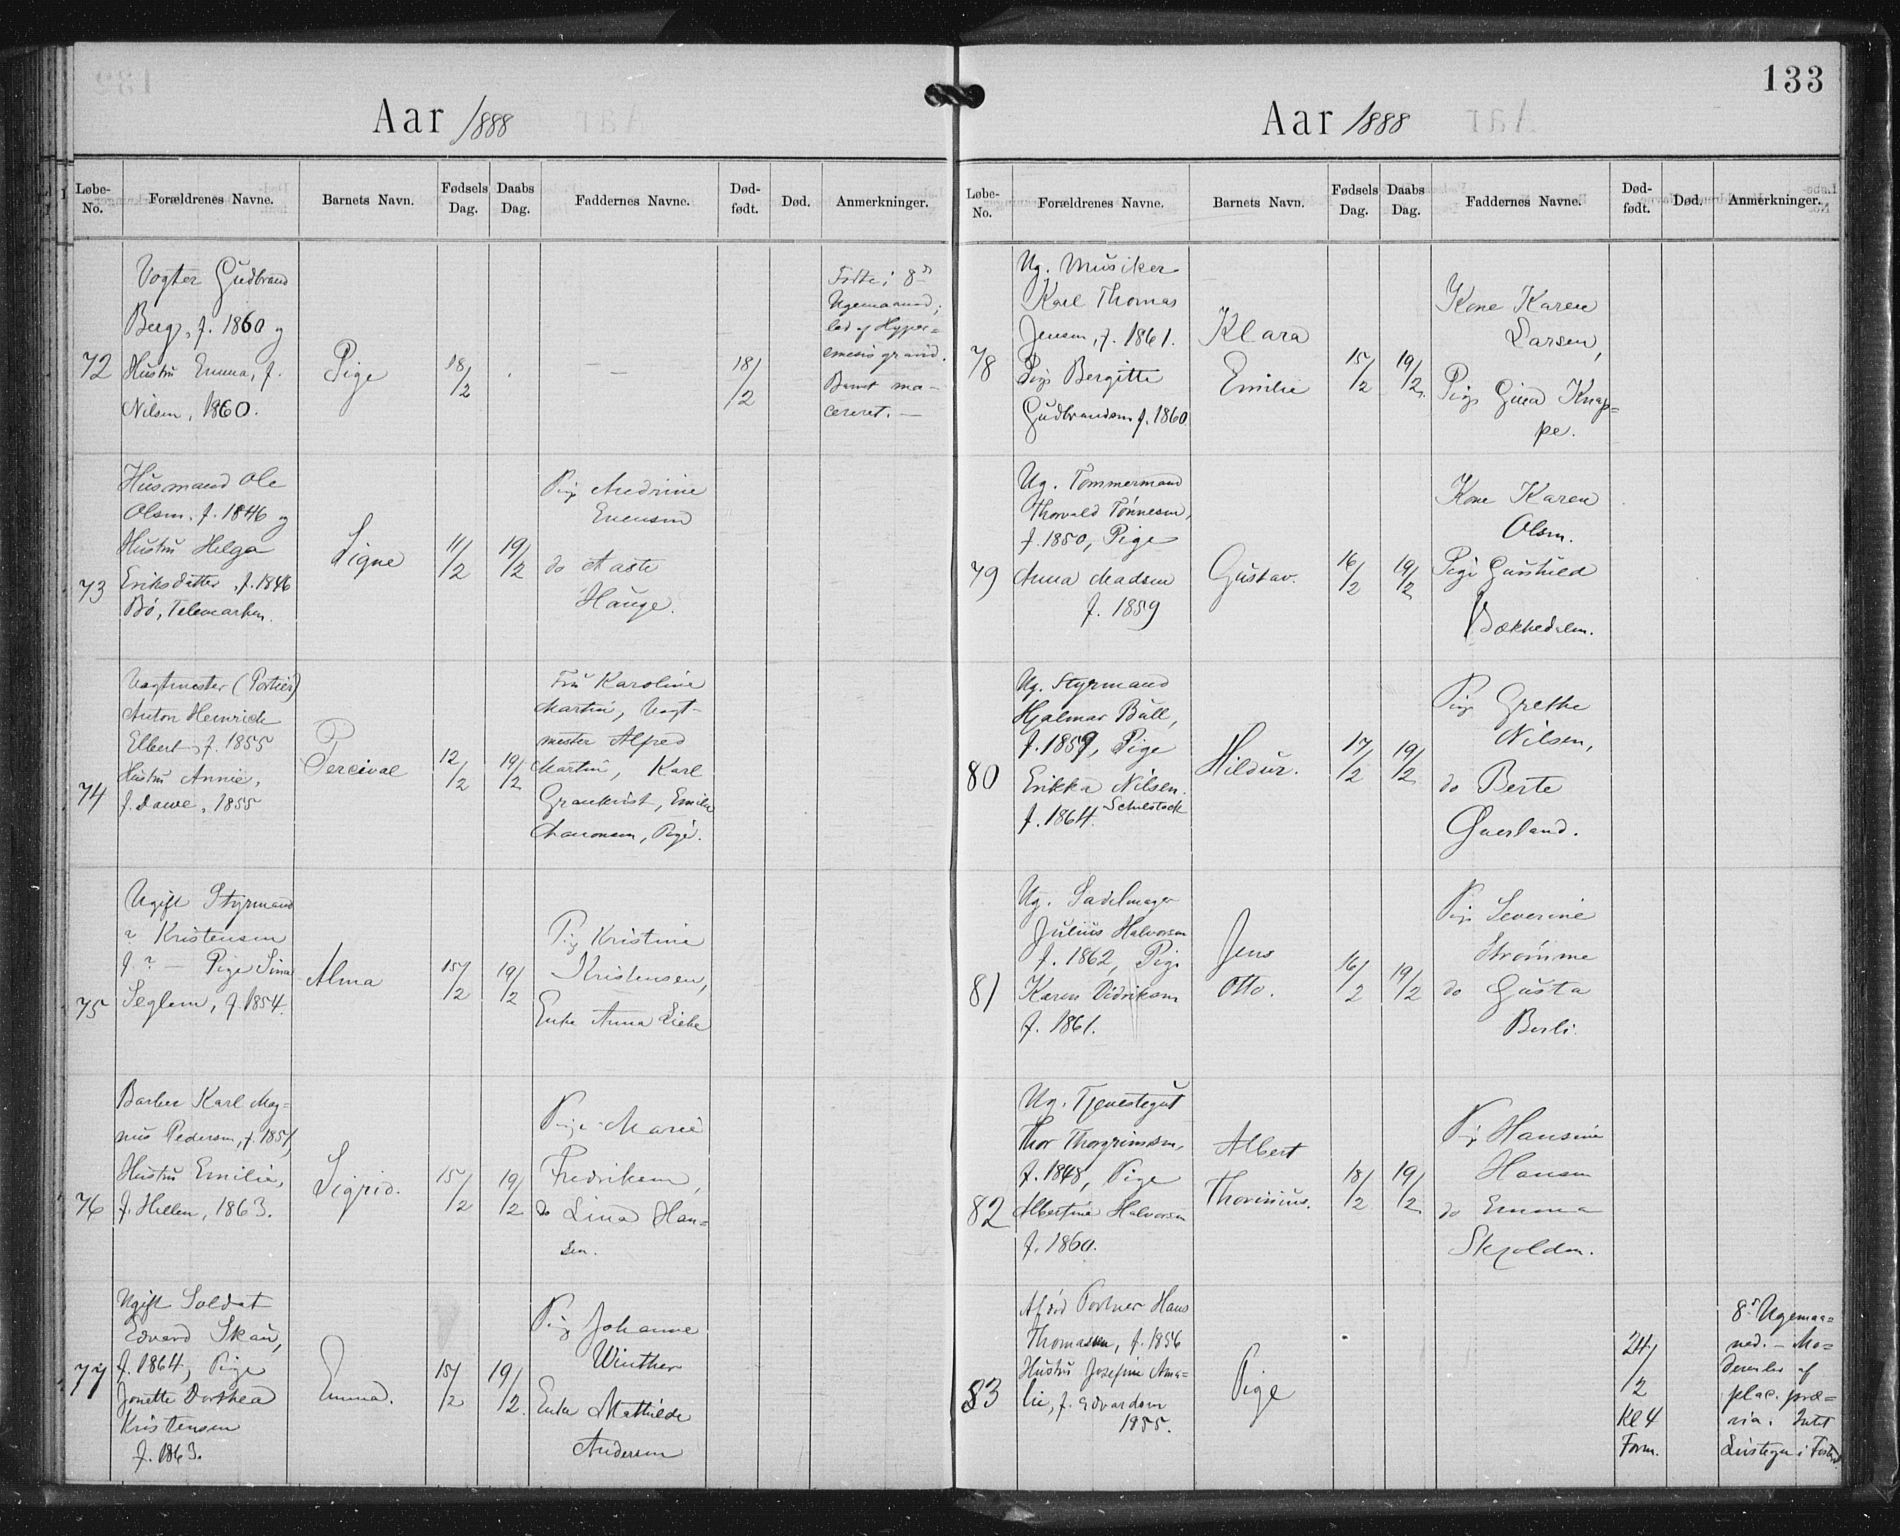 Aar 1888
Løbe-
No.
Forældrenes Navne.
Barnets Navn.
Fødsels
Dag.
Daabs
Dag.
Faddernes Navne.
Død-
født.
Død.
Anmerkninger.
72
Vogter Gudbrand
Berg, f. 1860 og
Hustru Emma, f.
Nilsen, 1860.
Pige
18/2
—
18/2
8de
Ugemaaned;
led af Hyper=
emesis gravid.
Barnet ma-
cereret. —
73
Husmand Ole
Olsen. f. 1846 og
Hustru Helga
Eriksdatter, f. 1846
Bø, Telemarken.
Signe
11/2
19/2
Pige Andrine
Evensen
do Aaste
Hauge.
74
Vagtmester (Portier)
Anton Heinrich
Elbert, f. 1855
Hustru Annie,
f. Dawe, 1855
Percival
12/2
19/2
Fru Karoline
Martin, Vagt-
mester Alfred
Martin, Karl
Grankvist, Emilie
Aaronsen, Pige.
75
Ugift Styrmand
? Kristensen
f. ? — Pige Sina
Seglem, f. 1854.
Alma
15/2
19/2
Pige Kristine
Kristensen,
Enke Anna Lieke
76
Barber Karl Mag=
nus Pedersen, f. 1857,
Hustru Emilie,
f. Hellen, 1863.
Sigrid.
15/2
19/2
Pige Marie
Fredriksen,
do Lina Han=
sen.
77
Ugift Soldat
Edvard Skau,
f. 1864, Pige
Jonette Dorthea
Kristensen
f. 1863.
Emma.
15/2
19/2.
Pige Johanne
Winther
Enke Mathilde
Andersen
133
Aar 1888
Løbe-
No.
Forældrenes Navne.
Barnets Navn.
Fødsels
Dag.
Daabs
Dag.
Faddernes Navne.
Død-
født.
Død.
Anmerkninger.
78
Ug. Musiker
Karl Thomas
Jensen, f. 1861.
Pige Bergitte
Gudbrandsen f. 1860
Klara
Emilie
15/2
19/2.
Kone Karen
Larsen,
Pige Gina Knap=
pe.
79
Ug. Tømmermand
Thorvald Tønnesen,
f. 1850, Pige
Anna Madsen
f. 1859
Gustav.
16/2
19/2
Kone Karen
Olsen.
Pige Gunhild
Bækkedalen.
80
Ug. Styrmand
Hjalmar Bull,
f. 1859, Pige
Erikka Nilsen
f. 1864. Schulstock
Hildur.
17/2
19/2
Pige Grethe
Nilsen,
do Berte
Øverland.
81
Ug. Sadelmager
Julius Halvorsen
f. 1862, Pige
Karen Didriksen
f. 1861.
Jens
Otto.
16/2
19/2
Pige Severine
Strømme
do Gusta
Berli.
82
Ug. Tjenestegut
Thor Thorgrimsen,
f. 1848, Pige
Albertine Halvorsen
f. 1860.
Albert
Thorinius.
18/2
19/2
Pige Hansine
Hansen
do Emma
Skjolden.
83
Afdød Portner Hans
Thomassen, f. 1856
Hustru Josefine Ama=
lie, f. Edvardsen
1855.
Pige
24/2
Kl 4
Form.
8de Ugemaa=
ned. — Mo=
deren led af
plac. præ=
via. Intet
Livstegn i Fosteret